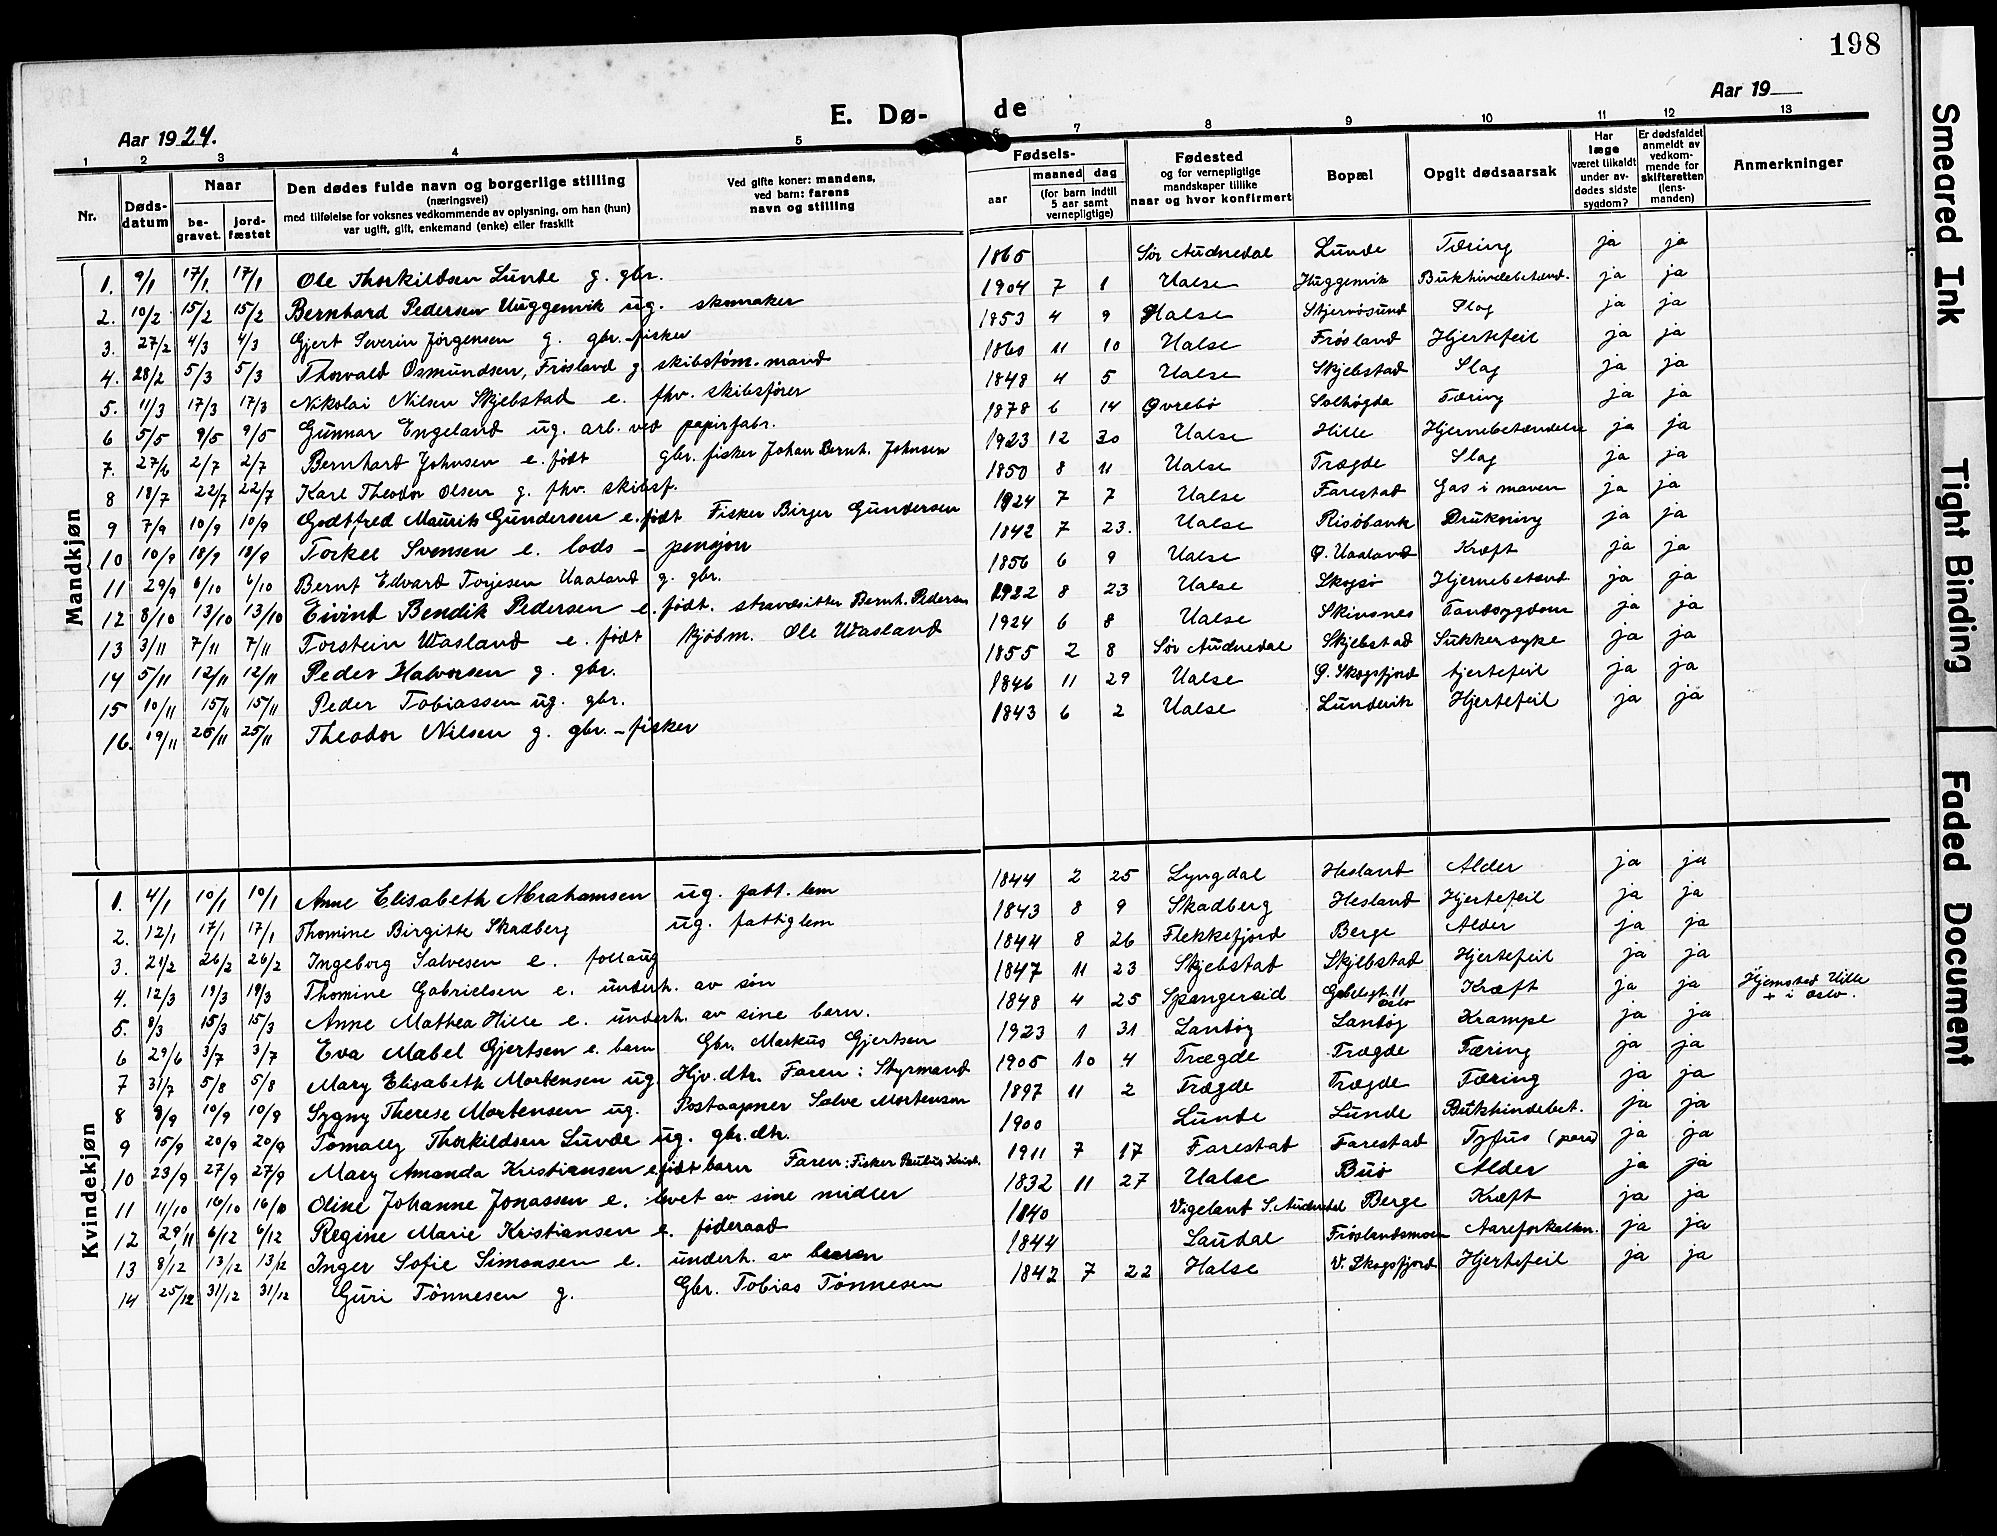 198
Aar 1924.
E. Dø-
de
Aar 19
1 2 3 4 5 7 8 9 10 11 12 13
Nr.
Døds-datum
Naar
be-gravet
jord-fæstet
Den dødes fulde navn og borgerlige stilling
(næringsvei)
med tilføielse for voksnes vedkommende av oplysning, om han (hun)
var ugift, gift, enkemand (enke) eller fraskilt
Ved gifte koner: mandens,
ved barn: farens
navn og stilling
Fødsels-
aar
maaned dag
(for barn indtil
5 aar samt
vernepligtige)
Fødested
og for vernepligtige
mandskaper tillike
naar og hvor konfirmert
Bopæl
Opgit dødsaarsak
Har
læge
været tilkaldt
under av-
dødes sidste
sygdom?
Er dødsfaldet
anmeldt av
vedkom-
mende for
skifteretten
(lens-
manden)
Anmerkninger
Mandkjøn
1. 9/1 17/1. 17/1 Ole Thorkildsen Lunde g. gbr. 1865 Sør Audnedal Lunde Tæring ja ja
2. 10/2 15/2 15/2 Bernhard Pedersen Uuggenvik ug. skomaker 1904 7 1 Halse Huggenvik Bukhindebetænd. ja ja
3. 27/2 4/3 4/3 Gjert Severin Jørgensen g. gbr.-fisker 1853 4 9 Halse Skjernøsund Slag ja ja
4. 28/2 5/3 5/3 Thorvald Osmundsen, Frøsland g skibstøm.mand 1860 11 10 Halse Frøsland Hjertefeil ja ja
5. 11/3 17/3 17/3 Nikolai Nilsen Skjebstad e. fhv. skibsfører 1848 4 5 Halse Skjebstad Slag ja ja
6 5/5 9/5 9/5 Gunnar Engeland ug. arb. ved papirfabr. 1878 6 14 Øvrebø Solhøgda Tæring ja ja
7. 27/6 2/7 2/7 Bernhard Johnsen e. født gbr. fisker Johan Bernh. Johnsen 1923 12 30 Halse Hille Hjernebetændelse ja ja
8 18/7 22/7 22/7 Karl Theodor Olsen g. fhv. skibsf. 1850 8 11 Halse Trægde Slag ja ja
9 7/9 10/9 10/9 Godtfred Maurits Gundersen e. født Fisker Birger Gundersen 1924 7 7 Halse Farestad Gas i maven ja ja
10 10/9 18/9 18/9 Torkel Svensen e. lods - pensjon 1842 7 23. Halse Risøbank Drukning ja ja
11 29/9 6/10 6/10 Bernt Edvard Torjesen Uaaland g. gbr. 1856 6 9 Halse Ø. Uaaland Kræft ja ja
12 8/10 13/10 13/10 Eivind Bendik Pedersen e. født. strandsitter Bernt. Pedersen 1922 8 23 Halse Skogsø Hjernebetænd. ja ja
13 3/11 7/11 7/11 Torstein Uasland e. født kjøbm. Ole Uasland 1924 6 8 Halse Skinsnes Tandsygdom ja ja
14 5/11 12/11 12/11 Peder Halvorsen g. gbr. 1855 2 8 Sør Audnedal Skjebstad Sukkersyke ja ja
15 10/11 15/11 15/11 Peder Tobiassen ug. gbr. 1846 11 29 Halse Ø. Skogsfjord hjertefeil ja ja
16. 19/11 25/11 25/11 Theodor Nilsen g. gbr.-fisker 1843 6 2 Halse Lundevik Hjertefeil ja ja
Kvindekjøn
1. 4/1 10/1 10/1 Anne Elisabeth Abrahamsen ug. fatt. lem 1844 2 25 Lyngdal Hesland Alder ja ja
2. 12/1 17/1 17/1 Thomine Birgitte Skadberg ug. fattiglem 1843 8 9 Skadberg Hesland Hjertefeil ja ja
3. 21/2 26/2 26/2 Ingeborg Salvesen e. follaug 1844 8 26 Flekkefjord Berge Alder ja ja
4. 12/3 19/3 19/3 Thomine Gabrielsen e. underh. av søn 1847 11 23 Skjebstad Skjebstad Hjertefeil ja ja
5. 8/3 15/3 15/3 Anne Mathea Hille e. underh. av sine barn. 1848 4 25 Spangereid Gabelsgt. 11 Oslo Kræft ja ja Hjemsted Hille + i Oslo.
6 29/6 3/7 3/7 Eva Mabel Gjertsen e. barn Gbr. Markus Gjertsen 1923 1 31 Landøy Landøy Krampe ja ja
7 31/7 5/8 5/8 Mary Elisabeth Mortensen ug. Hjv. dtr. Faren: Styrmand 1905 10 4 Trægde Trægde Tæring ja ja
8 9/9 10/9 10/9 Sygny Therese Mortensen ug. Postaapner Salve Mortensen 1897 11 2 Trægde Trægde Tæring ja ja
9 15/9 20/9 20/9 Tomally Thorkildsen Lunde ug. gbr. dtr. 1900 Lunde Lunde Bukhindebet. ja ja
10 23/9 27/9 27/9 Mary Amanda Kristiansen e. født barn Faren: Fisker Paulus Krist. 1911 7 17 Farestad Farestad Tyfus (para) ja ja
11 11/10 16/10 16/10 Oline Johanne Jonassen e. levet av sine midler 1832 11 27 Halse Buø Alder ja ja
12 29/11 6/12 6/12 Regine Marie Kristiansen e. føderaad 1840 Vigeland S. Audnedal Berge Kræft ja ja
13 8/12 13/12 13/12 Inger Sofie Simonsen e. underh. av barn 1844 Laudal Frøslandsmoen Aareforkalkn. ja ja
14 25/12 31/12 31/12 Guri Tønnesen g. Gbr. Tobias Tønnesen 1842 7 22 Halse V. Skogsfjord Hjertefeil ja ja
Smeared Ink
Tight Binding
Faded Document